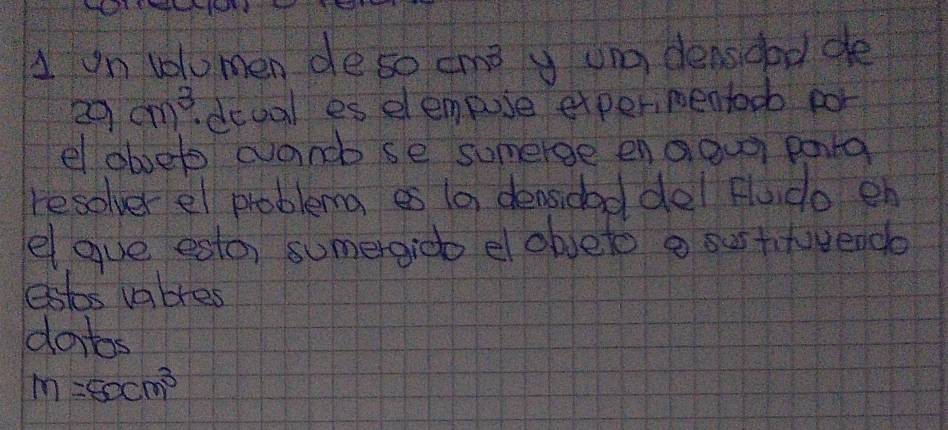 1 Un volumen de 50 cm³ y una densidad de
2g cm³. dcual es el empuje experimentado por
el objeto cuando se sumerge en agua para
resolver el problema es la densidad del Fluido en
el que esta sumergido el objeto sustituyendo
estos valores
datos
m = 50cm³